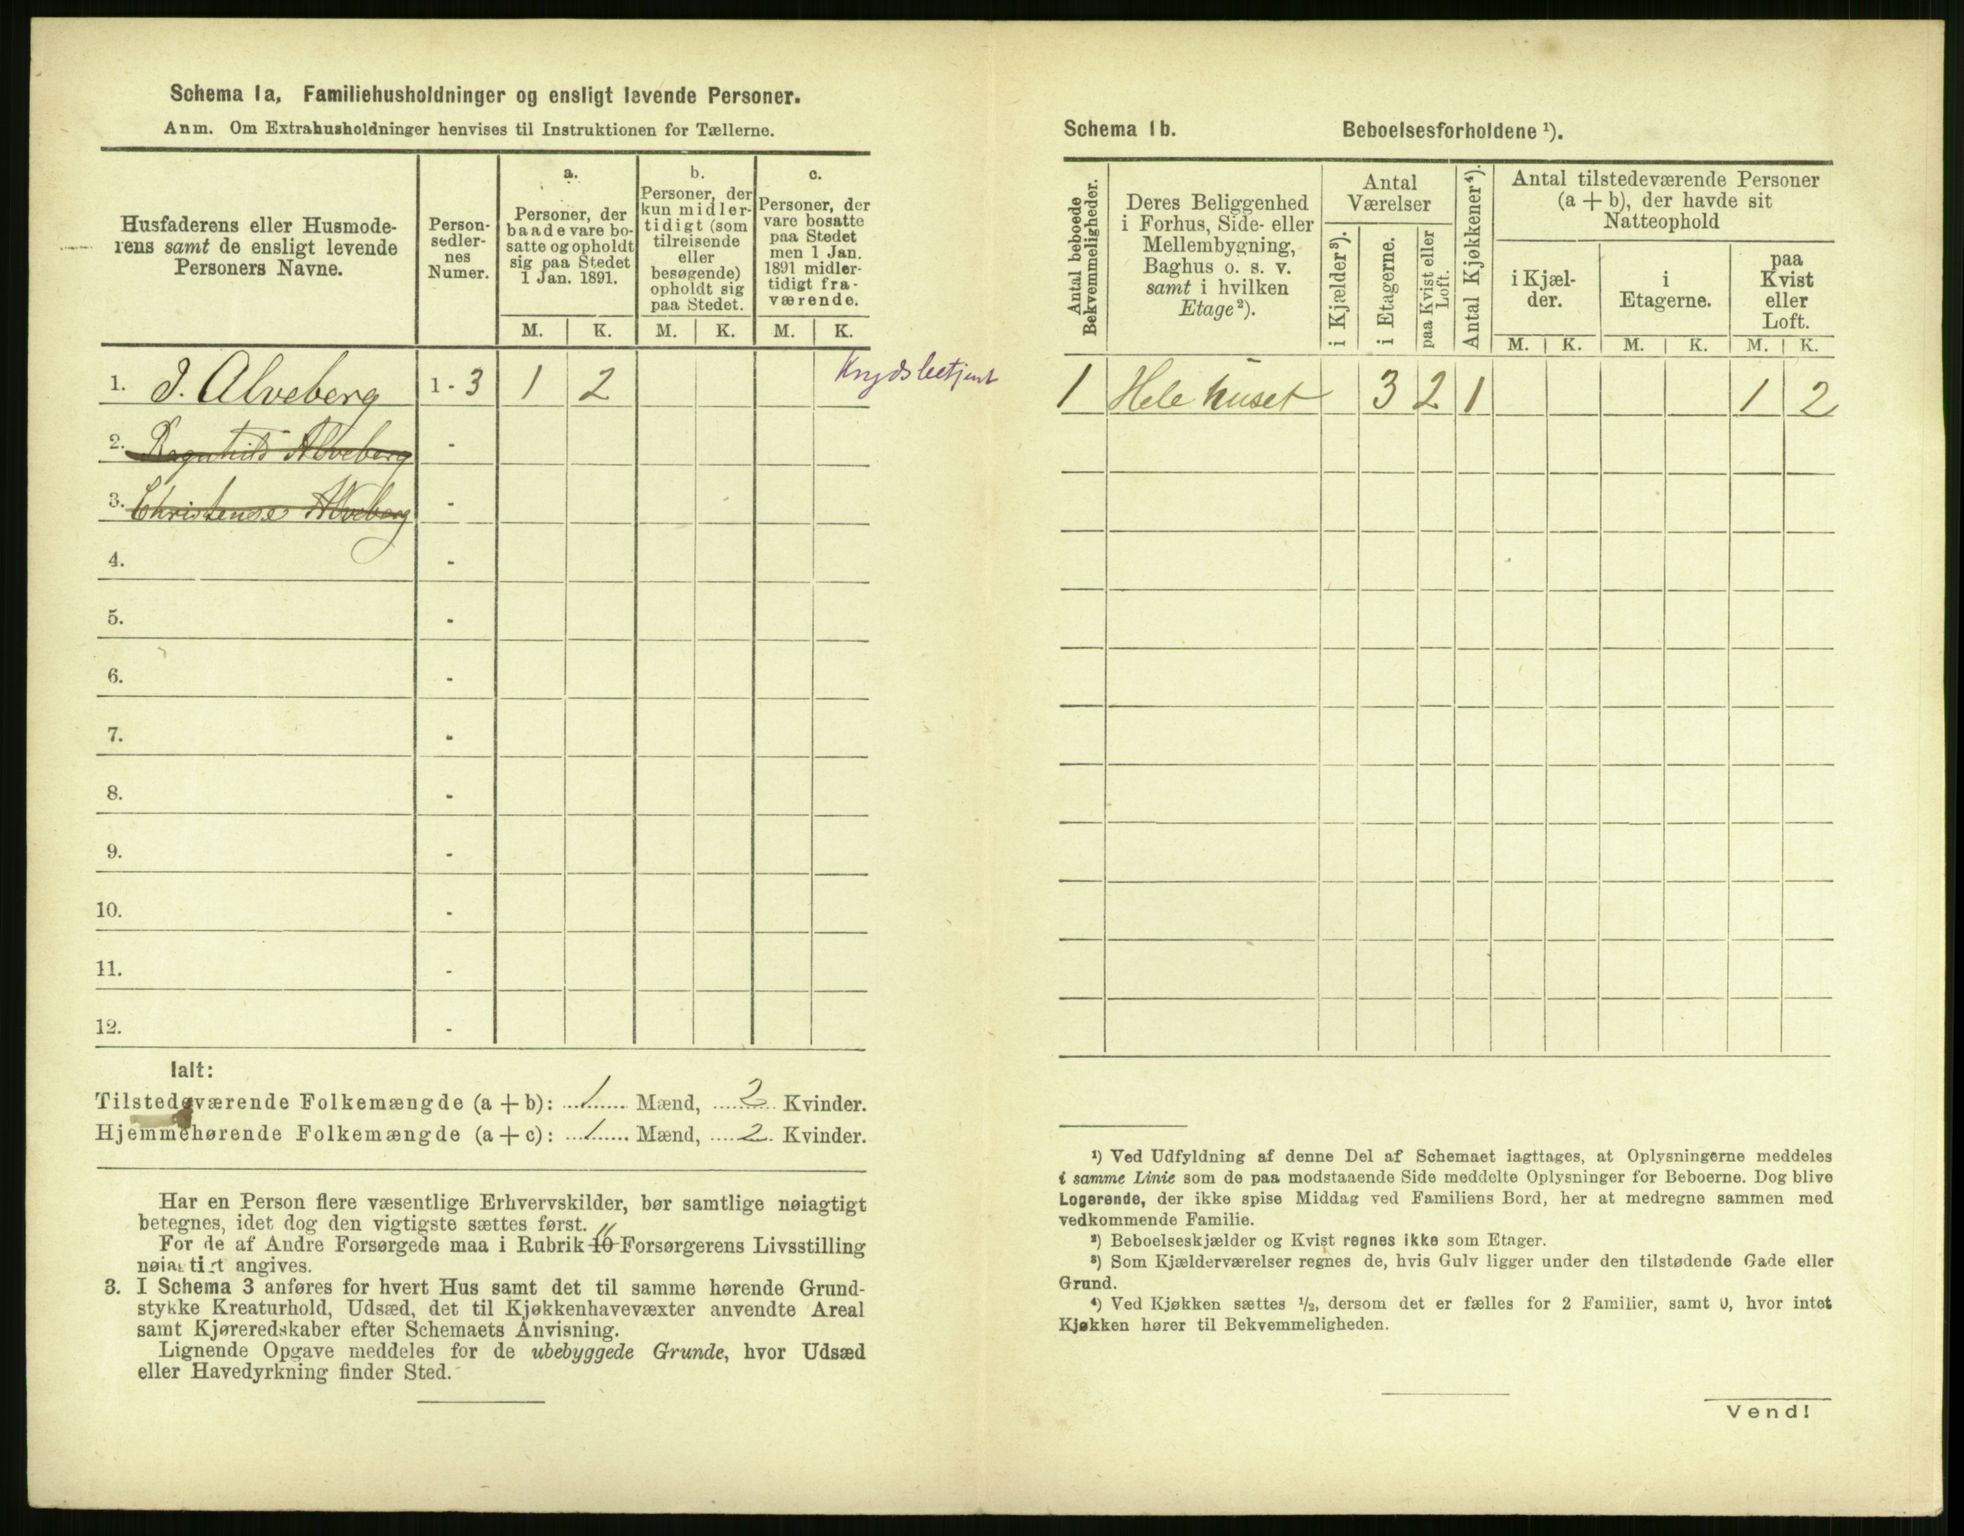 Schema 1a. Familiehusholdninger og ensligt levende Personer.
Anm. Om Extrahusholdninger henvises til Instruktionen for Tællerne.
Husfaderens eller Husmode-
rens samt de ensligt levende
Personers Navne.
Person-
sedler-
nes
Numer.
a.
Personer, der
baade vare bo-
satte og opholdt
sig paa Stedet
1 Jan. 1891.
b.
Personer, der
kun midler-
tidigt (som
tilreisende
eller
besøgende)
opholdt sig
paa Stedet.
c.
Personer, der
vare bosatte
paa Stedet
men 1 Jan.
1891 midler-
tidigt fra-
værende.
M. K. M. K. M. K.
1. J. Alveberg 1 - 3 1 2 Krydsbetjent
2. Ragnhild Alveberg -
3. Christense Alveberg -
4. -
5. -
6. -
7. -
8. -
9. -
10. -
11. -
12. -
Ialt:
Tilstedeværende Folkemængde (a + b): 1 Mænd, 2 Kvinder.
Hjemmehørende Folkemængde (a + c): 1 Mænd, 2 Kvinder.
Har en Person flere væsentlige Erhvervskilder, bør samtlige nøiagtigt
betegnes, idet dog den vigtigste sættes først.
For de af Andre Forsørgede maa i Rubrik 10 11 Forsørgerens Livsstilling
nøiagtigt angives.
3. I Schema 3 anføres for hvert Hus samt det til samme hørende Grund-
stykke Kreaturhold, Udsæd, det til Kjøkkenhavevæxter anvendte Areal
samt Kjøreredskaber efter Schemaets Anvisning.
Lignende Opgave meddeles for de ubebyggede Grunde, hvor Udsæd
eller Havedyrkning finder Sted.
Schema 1b. Beboelsesforholdene ¹).
Antal beboede
Bekvemmeligheder.
Deres Beliggenhed
i Forhus, Side- eller
Mellembygning,
Baghus o. s. v.
samt i hvilken
Etage ²).
Antal
Værelser
i Kjælder ³).
i Etagerne.
paa Kvist eller
Loft.
Antal Kjøkkener ⁴).
Antal tilstedeværende Personer
(a + b), der havde sit
Natteophold
i Kjæl-
der.
i
Etagerne.
paa
Kvist
eller
Loft.
M. K. M. K. M. K.
1 Hele huset 3 2 1 1 2
¹) Ved Udfyldning af denne Del af Schemaet iagttages, at Oplysningerne meddeles
i samme Linie som de paa modstaaende Side meddelte Oplysninger for Beboerne. Dog blive
Logerende, der ikke spise Middag ved Familiens Bord, her at medregne sammen med
vedkommende Familie.
²) Beboelseskjælder og Kvist regnes ikke som Etager.
³) Som Kjælderværelser regnes de, hvis Gulv ligger under den tilstødende Gade eller
Grund.
⁴) Ved Kjøkken sættes ½, dersom det er fælles for 2 Familier, samt 0, hvor intet
Kjøkken hører til Bekvemmeligheden.
Vend!